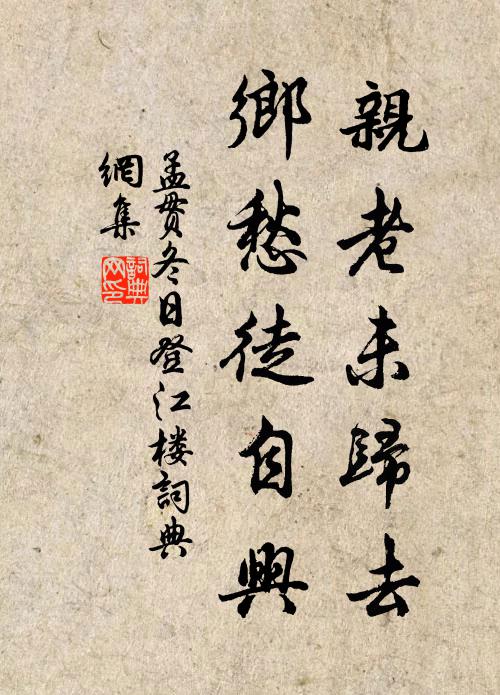 親老未歸去
鄉愁徒自興
孟貫冬日登江楼詞典
網集
詞典
网印